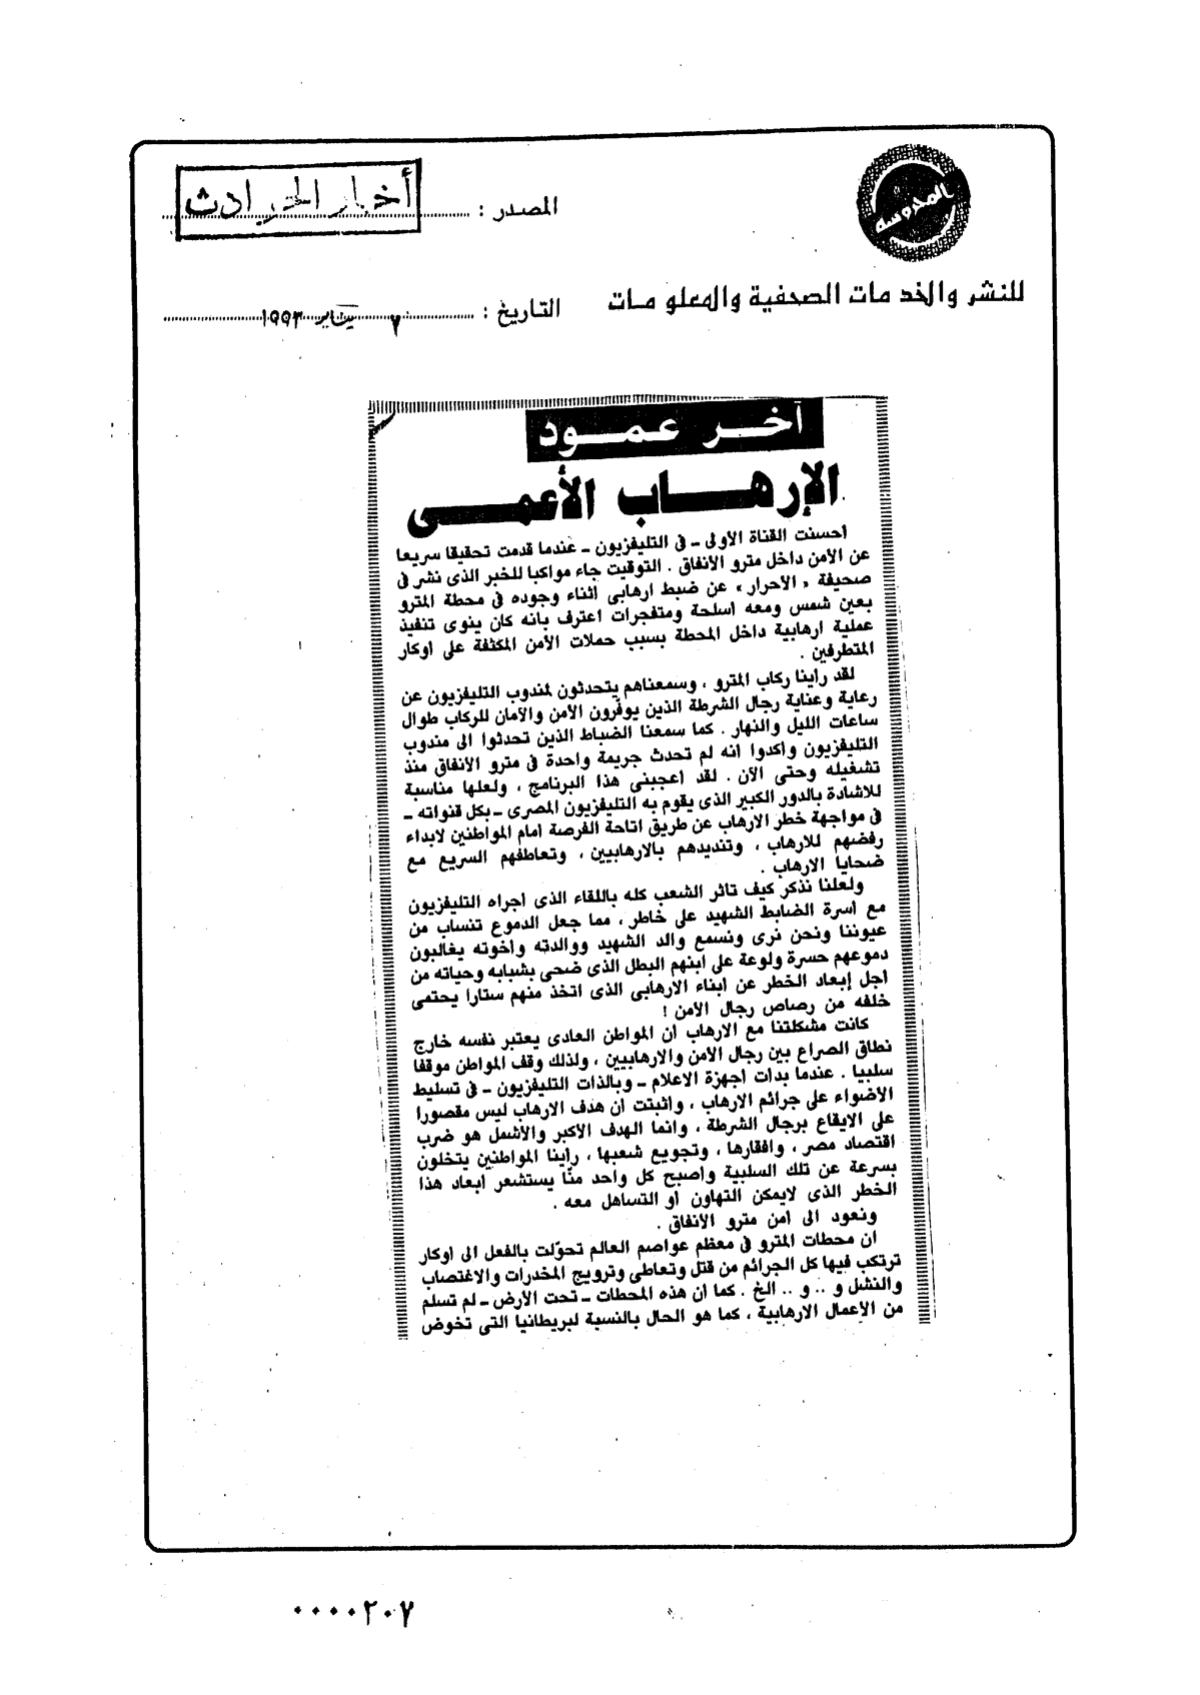 المحروسة
المصدر : أخبار الحوادث
للنشر والخدمات الصحفية والمعلومات
التاريخ : ٧ يناير ١٩٩٣
آخر عمود
الإرهاب الأعمى
أحسنت القناة الأولى - فى التليفزيون - عندما قدمت تحقيقا سريعا
عن الأمن داخل مترو الأنفاق . التوقيت جاء مواكبا للخبر الذى نشر فى
صحيفة « الأحرار » عن ضبط ارهابى أثناء وجوده فى محطة المترو
بعين شمس ومعه اسلحة ومتفجرات اعترف بأنه كان ينوى تنفيذ
عملية ارهابية داخل المحطة بسبب حملات الأمن المكثفة على أوكار
المتطرفين .
لقد راينا ركاب المترو ، وسمعناهم يتحدثون لمندوب التليفزيون عن
رعاية وعناية رجال الشرطة الذين يوفرون الأمن والأمان للركاب طوال
ساعات الليل والنهار . كما سمعنا الضباط الذين تحدثوا الى مندوب
التليفزيون واكدوا انه لم تحدث جريمة واحدة فى مترو الأنفاق منذ
تشغيله وحتى الآن . لقد أعجبنى هذا البرنامج ، ولعلها مناسبة
للاشادة بالدور الكبير الذى يقوم به التليفزيون المصرى - بكل قنواته -
فى مواجهة خطر الارهاب عن طريق اتاحة الفرصة امام المواطنين لابداء
رفضهم للارهاب ، وتنديدهم بالارهابيين ، وتعاطفهم السريع مع
ضحايا الارهاب .
ولعلنا نذكر كيف تاثر الشعب كله باللقاء الذى اجراه التليفزيون
مع اسرة الضابط الشهيد على خاطر ، مما جعل الدموع تنساب من
عيوننا ونحن نرى ونسمع والد الشهيد ووالدته واخوته يغالبون
دموعهم حسرة ولوعة على ابنهم البطل الذى ضحى بشبابه وحياته من
اجل إبعاد الخطر عن ابناء الارهابى الذى اتخذ منهم ستارا يحتمى
خلفه من رصاص رجال الأمن !
كانت مشكلتنا مع الارهاب ان المواطن العادى يعتبر نفسه خارج
نطاق الصراع بين رجال الأمن والارهابيين ، ولذلك وقف المواطن موقفا
سلبيا . عندما بدات اجهزة الاعلام - وبالذات التليفزيون - فى تسليط
الاضواء على جرائم الارهاب ، واثبتت ان هدف الارهاب ليس مقصورا
على الايقاع برجال الشرطة ، وانما الهدف الأكبر والأشمل هو ضرب
اقتصاد مصر ، وافقارها ، وتجويع شعبها ، راينا المواطنين يتخلون
بسرعة عن تلك السلبية واصبح كل واحد منّا يستشعر ابعاد هذا
الخطر الذى لايمكن التهاون او التساهل معه .
ونعود الى امن مترو الأنفاق .
ان محطات المترو فى معظم عواصم العالم تحوّلت بالفعل الى اوكار
ترتكب فيها كل الجرائم من قتل وتعاطى وترويج المخدرات والاغتصاب
والنشل و .. و .. الخ . كما ان هذه المحطات - تحت الأرض - لم تسلم
من الأعمال الارهابية ، كما هو الحال بالنسبة لبريطانيا التى تخوض
٠٠٠٠٢٠٧